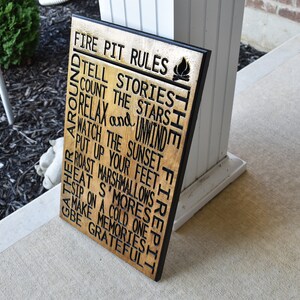 FIRE PIT RULES
GATHER AROUND
TELL STORIES
COUNT THE STARS
RELAX and UNWIND
WATCH THE SUNSET
PUT UP YOUR FEET
ROAST MARSHMALLOWS
EAT S'MORES
SIP ON A COLD ONE
MAKE MEMORIES
BE GRATEFUL
THE FIREPIT